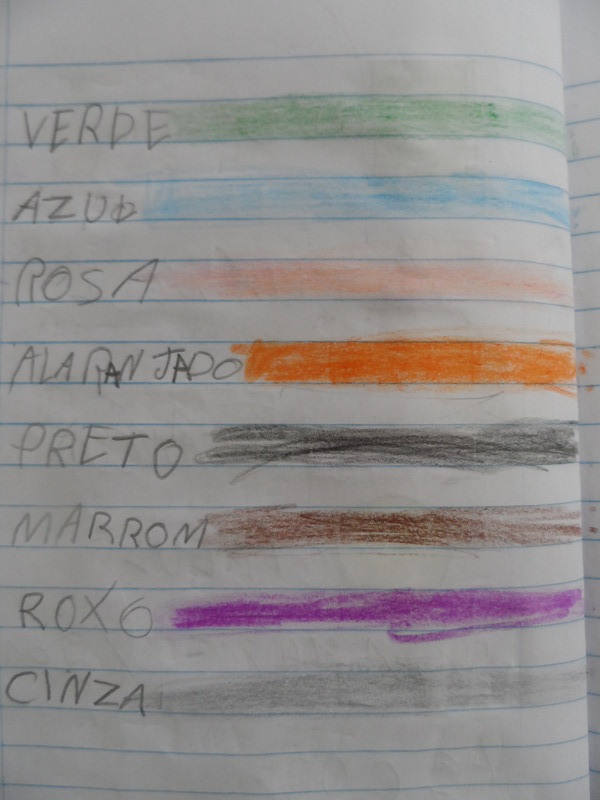 VERDE
AZUL
ROSA
ALARANJADO
PRETO
MARROM
ROXO
CINZA